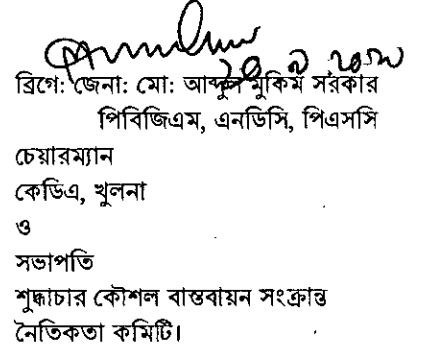 ব্রিগে: জেনা: মো: আব্দুল মুকিম সরকার
পিবিজিএম, এনডিসি, পিএসসি
চেয়ারম্যান
কেডিএ, খুলনা
ও
সভাপতি
শুদ্ধাচার কৌশল বাস্তবায়ন সংক্রান্ত
নৈতিকতা কমিটি।